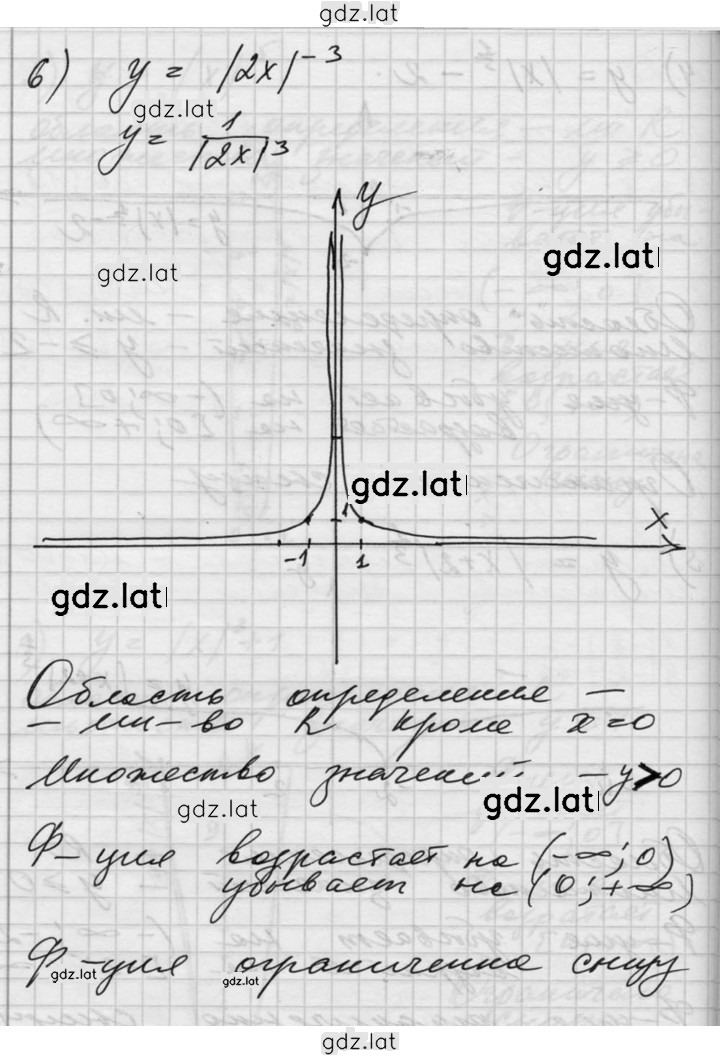 gdz.lat
6) y = |2x|⁻³
gdz.lat
y = 1/|2x|³
y
gdz.lat
gdz.lat
gdz.lat
1
x
-1 1
gdz.lat
Область определения –
– мн-во R кроме x=0
Множество значений – y>0
gdz.lat
gdz.lat
Ф-ция возрастает на (-∞; 0)
убывает на (0; +∞)
Ф-ция ограниченна снизу
gdz.lat
gdz.lat
gdz.lat